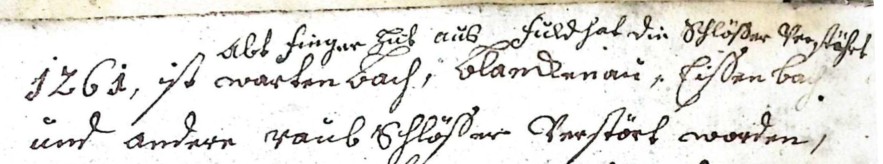 Abt finger Hut aus Fuld hat die Schlößer Verstöhrt
1261, ist wartenbach, blanckenau, Eissenbach
und andere raub Schlößer Verstört worden,